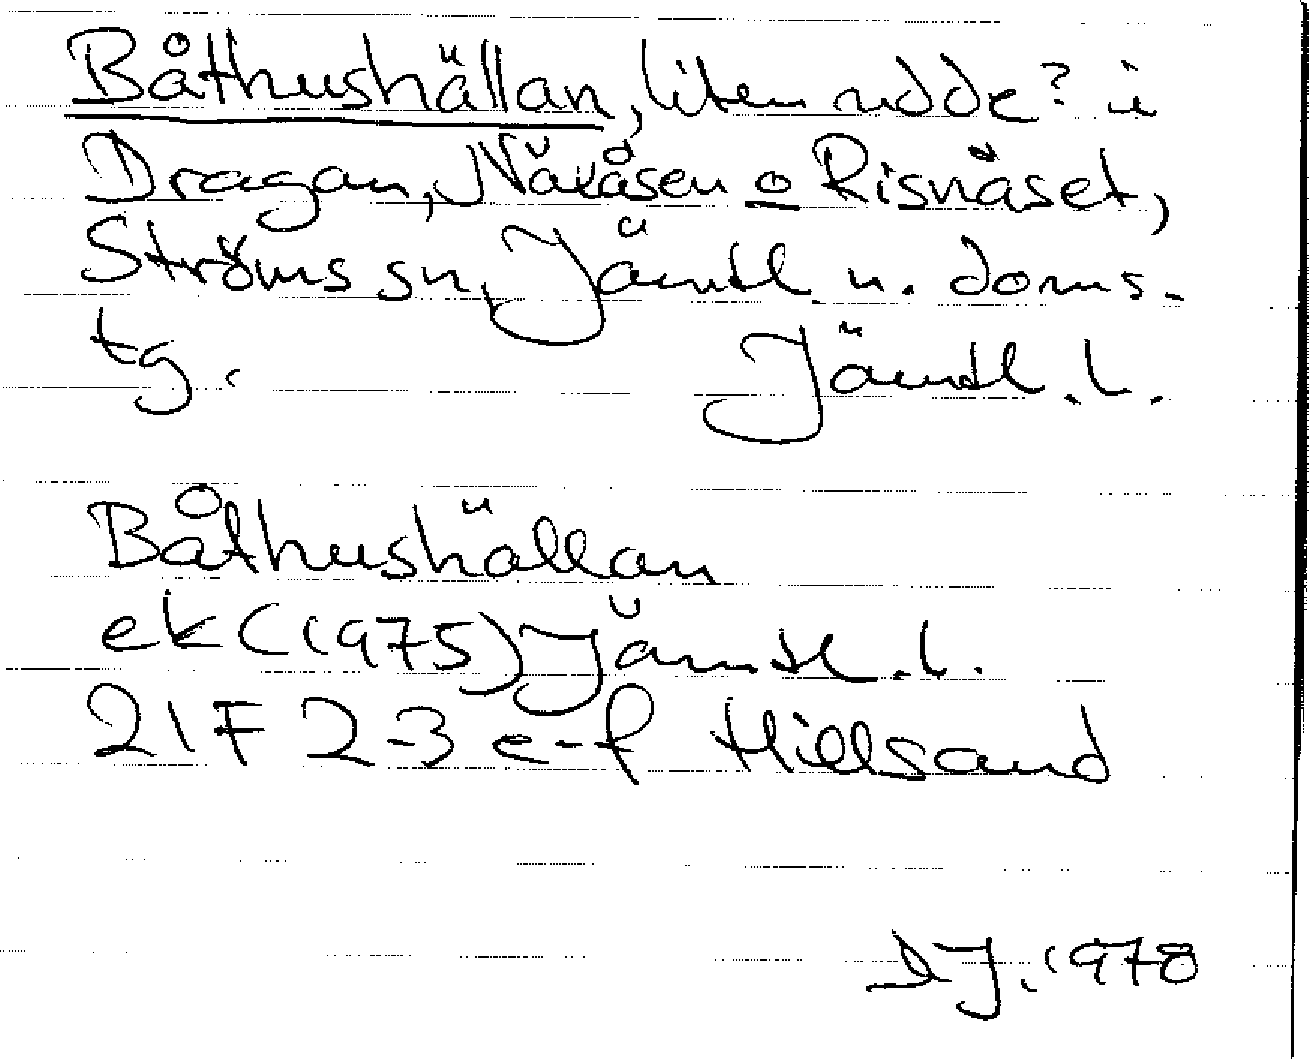 Båthushällan, liten udde? i
Dragan, Näxåsen o Risnäset,
Ströms sn, Jämtl. n. doms.
tg. Jämtl. l.
Båthushällan
ek (1975) Jämtl. l.
21F 2-3 e-f Hillsand
1978